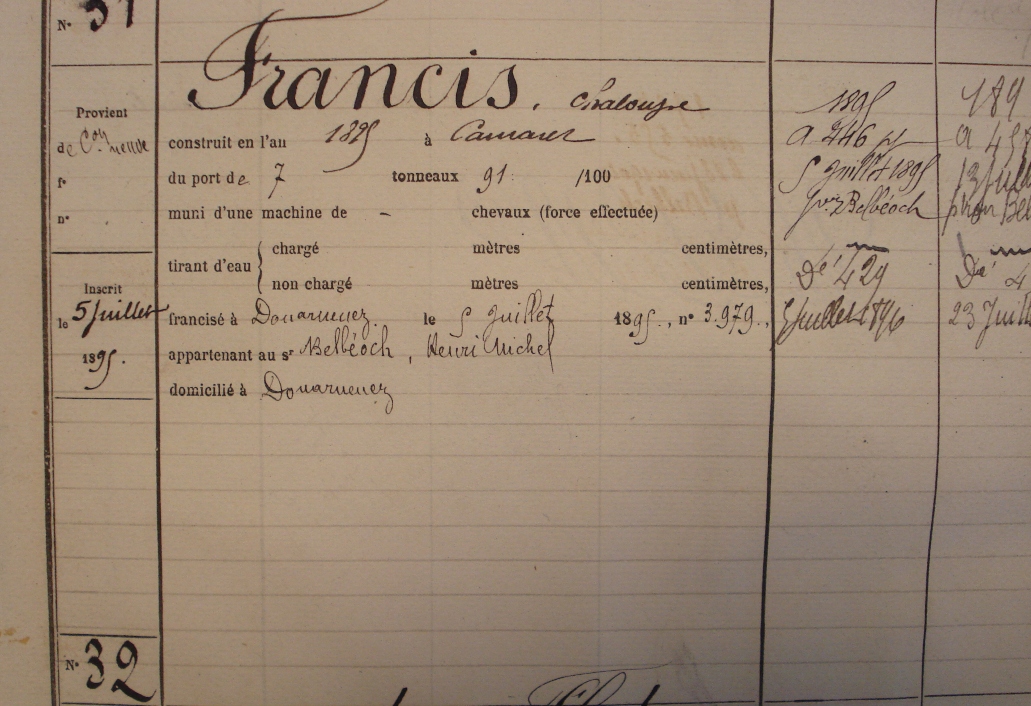 N° 31
Francis. Chaloupe
Provient
de Con neuve
f°
n°
construit en l'an 1895 à Camaret
du port de 7 tonneaux 91 /100
muni d'une machine de – chevaux (force effectuée)
tirant d'eau { chargé mètres centimètres,
non chargé mètres centimètres,
Inscrit
le 5 Juillet
1895.
francisé à Douarnenez le 5 Juillet 1895., n° 3.979.,
appartenant au sr Belbéoch, Henri Michel
domicilié à Douarnenez
1895
a 246
5 Juillet 1895
Belbéoch
Dé 429
5 Juillet 1896
189
a 45
13 Juil
Bel
Dé 4
23 Juill
N° 32